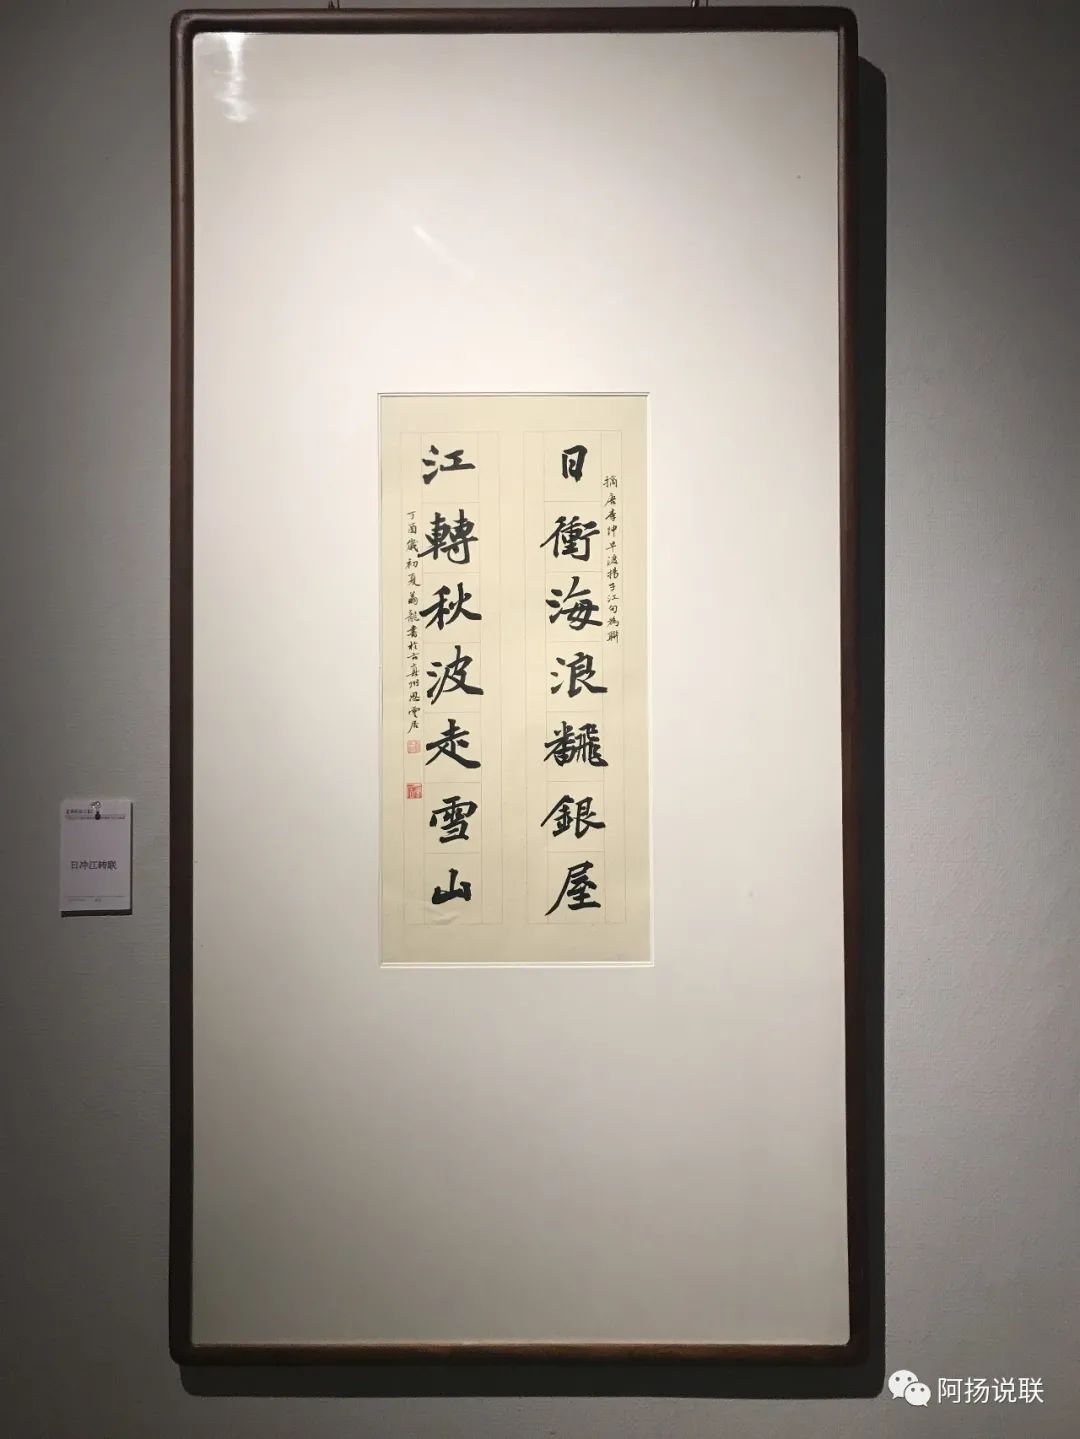 摘唐李绅早渡揚子江句為聯
日衝海浪飜銀屋
江轉秋波走雪山
丁酉歲初夏
龍書於古真州思雲居
日冲江转联
阿扬说联